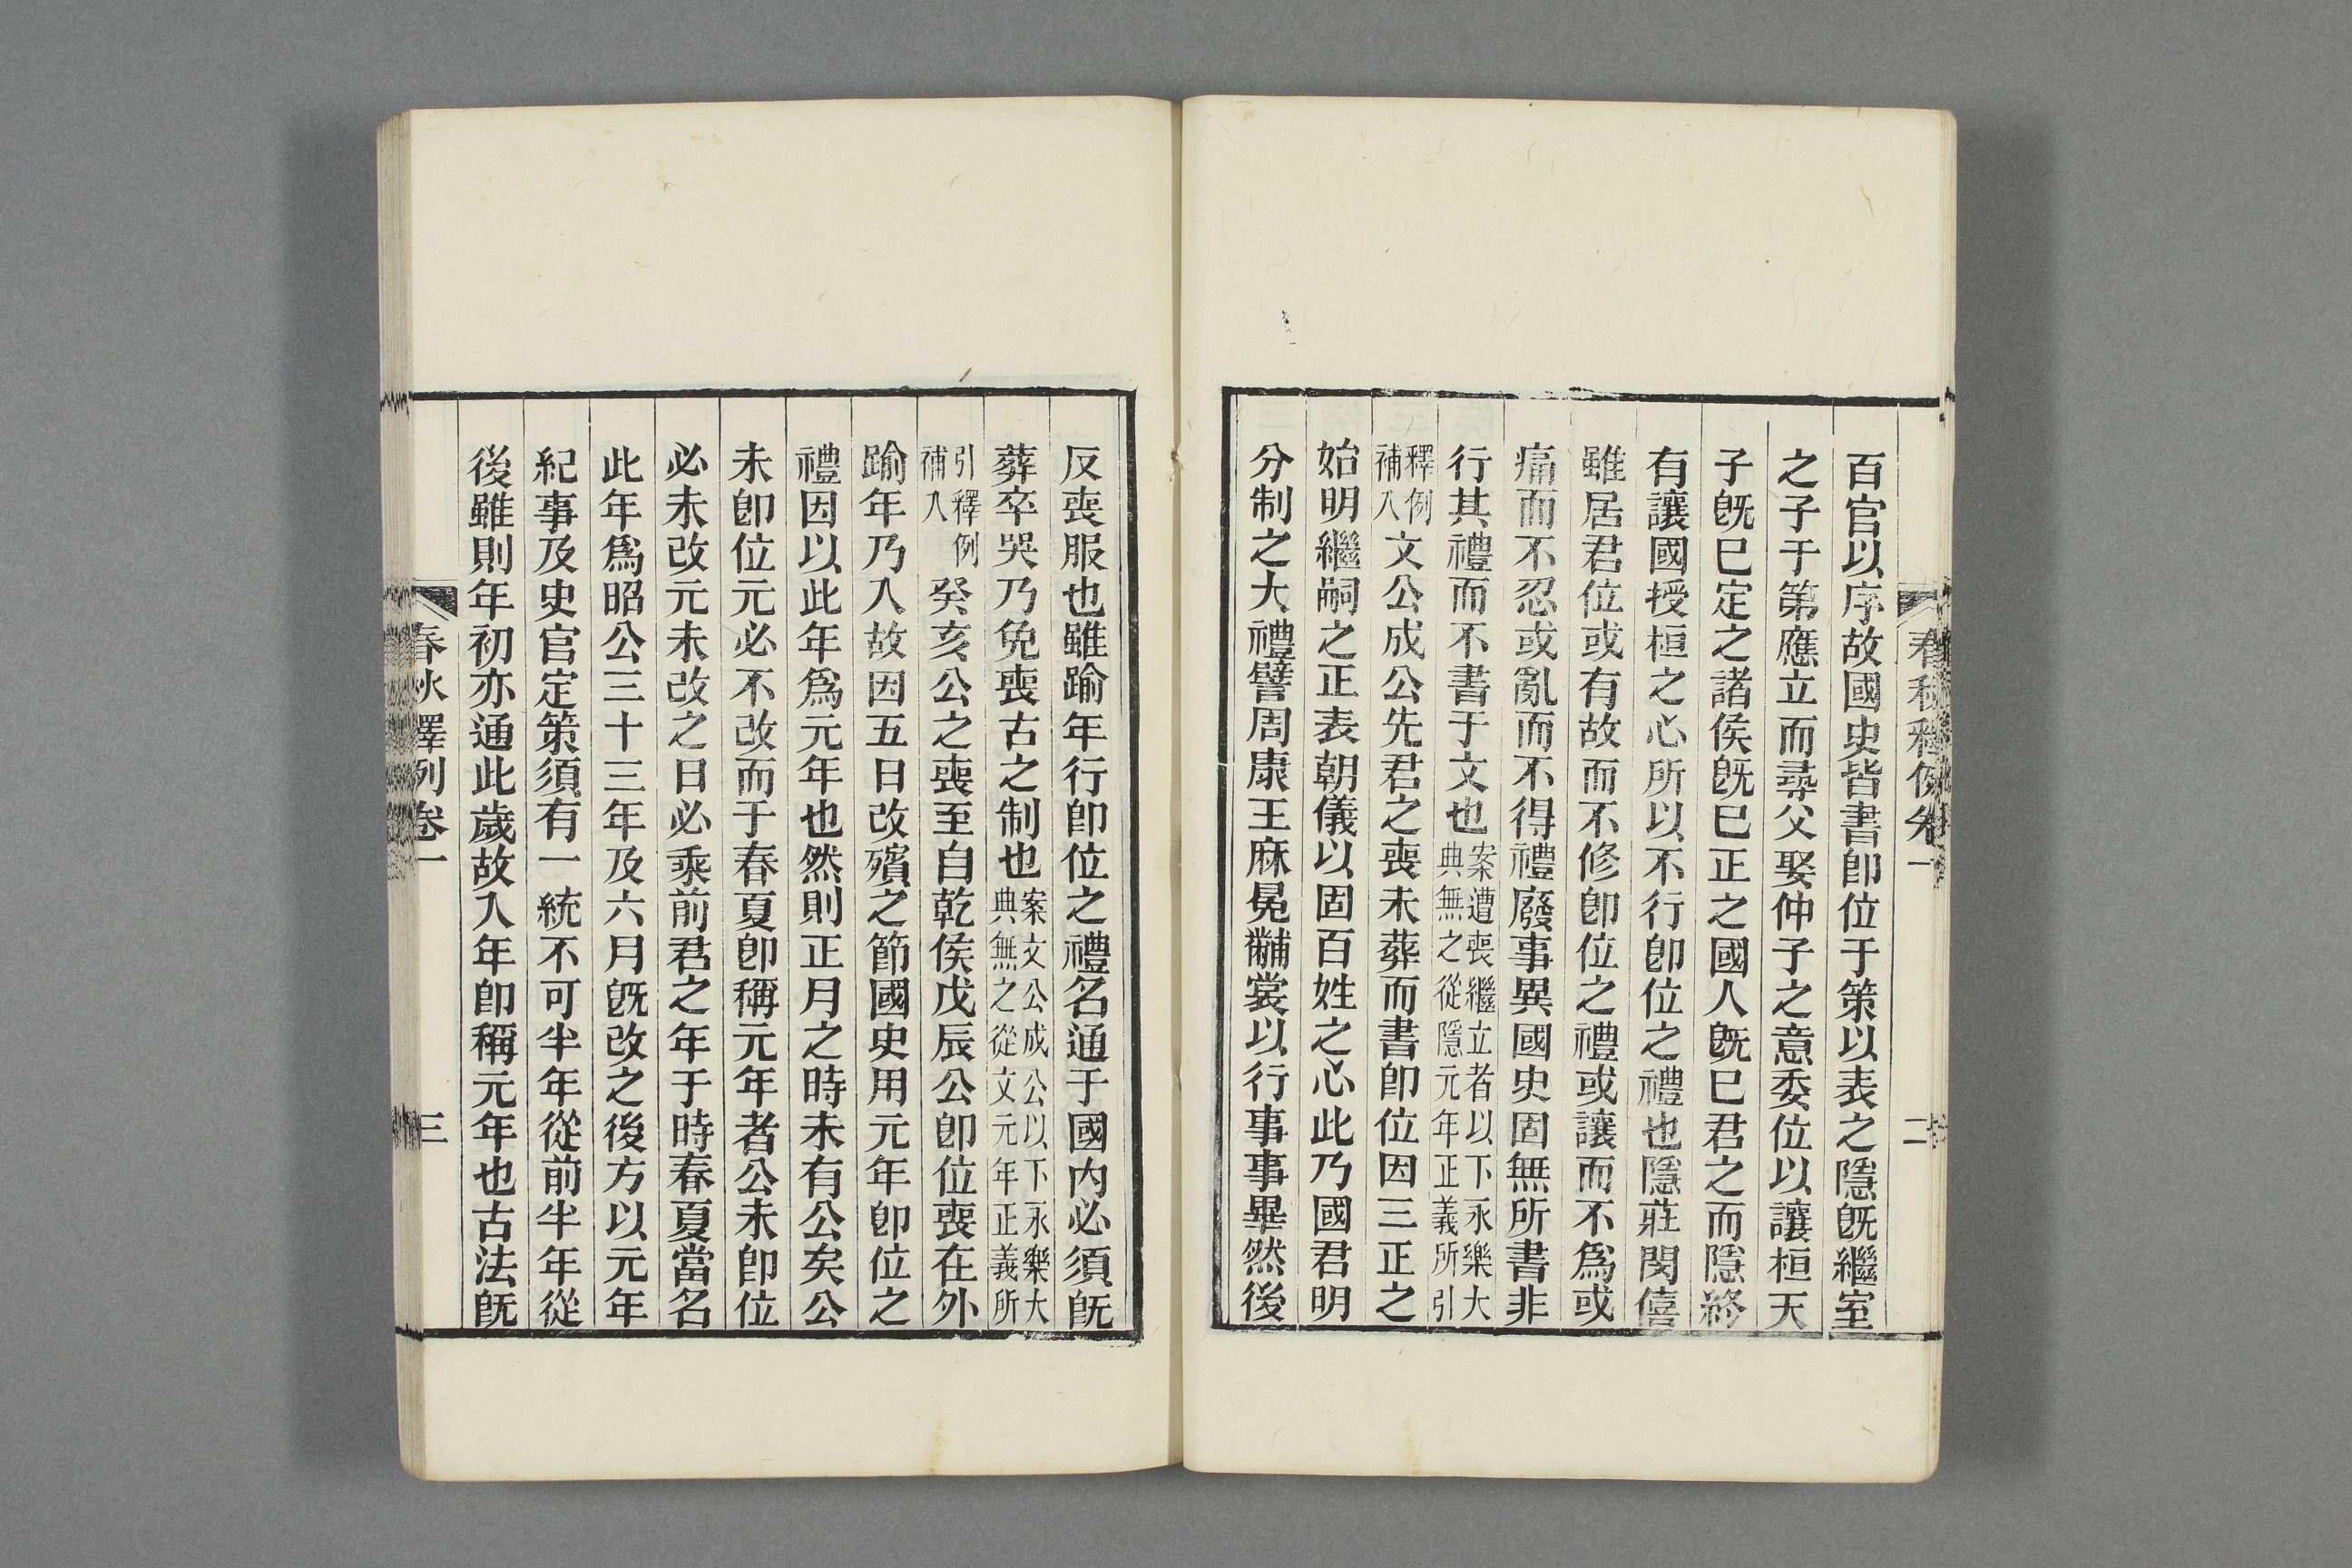 春秋釋例卷一 二
百官以序故國史皆書卽位于策以表之隱旣繼室
之子于第應立而尋父娶仲子之意委位以讓桓天
子旣已定之諸侯旣已正之國人旣已君之而隱終
有讓國授桓之心所以不行卽位之禮也隱莊閔僖
雖居君位或有故而不修卽位之禮或讓而不爲或
痛而不忍或亂而不得禮廢事異國史固無所書非
行其禮而不書于文也案遭喪繼立者以下永樂大典無之從隱元年正義所引
釋例補入文公成公先君之喪未葬而書卽位因三正之
始明繼嗣之正表朝儀以固百姓之心此乃國君明
分制之大禮譬周康王麻冕黼裳以行事事畢然後
反喪服也雖踰年行卽位之禮名通于國內必須旣
葬卒哭乃免喪古之制也案文公成公以下永樂大典無之從文元年正義所
引釋例補入癸亥公之喪至自乾侯戊辰公卽位喪在外
踰年乃入故因五日改殯之節國史用元年卽位之
禮因以此年爲元年也然則正月之時未有公矣公
未卽位元必不改而于春夏卽稱元年者公未卽位
必未改元未改之日必乘前君之年于時春夏當名
此年爲昭公三十三年及六月旣改之後方以元年
紀事及史官定策須有一統不可半年從前半年從
後雖則年初亦通此歲故入年卽稱元年也古法旣
春秋釋例卷一 三